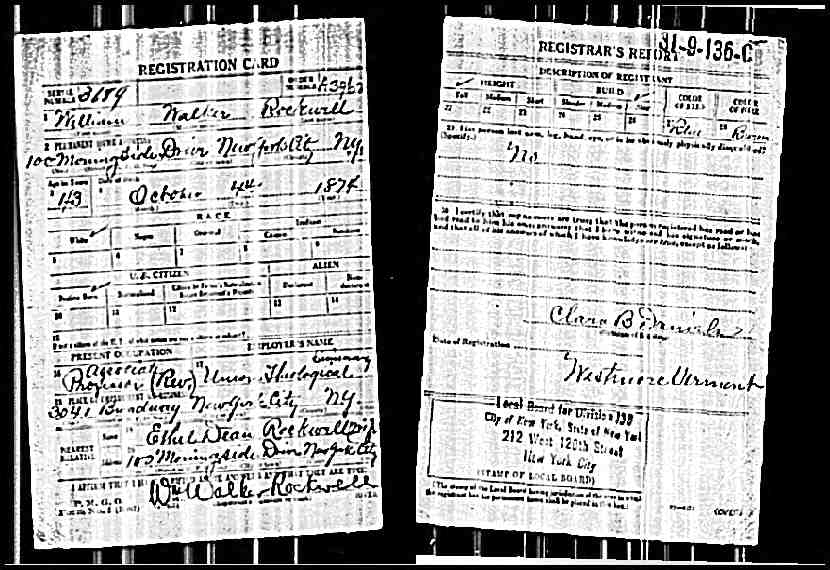 REGISTRATION CARD
SERIAL NUMBER 3689
ORDER NUMBER
1 William Walker Rockwell
2 PERMANENT HOME ADDRESS
Morningside Drive New York City NY
Age in Years
Date of Birth
43 October 1874
RACE
White Negro Oriental Indian
5 6 7 8 9
U. S. CITIZEN ALIEN
Native Born Naturalized
10 11 12 13 14
15
PRESENT OCCUPATION EMPLOYER'S NAME
16 Associate 17 Seminary
Professor (Rev.) Union Theological
3041 Broadway New York City NY
Name Ethel Dean Rockwell
NEAREST RELATIVE
Address Morningside Drive New York City
P. M. G. O.
Wm Walker Rockwell
31-9-136-C
REGISTRAR'S REPORT
DESCRIPTION OF REGISTRANT
HEIGHT BUILD COLOR OF EYES COLOR OF HAIR
Tall Medium Short Slender Medium Stout
21 22 23 24 25 26 27 Blue 28 Brown
29 Has person lost arm, leg, hand, eye, or is he obviously physically disqualified?
(Specify.)
No
30 I certify that my answers are true; that the person registered has read or has
had read to him his own answers; that I have witnessed his signature or mark,
and that all of his answers of which I have knowledge are true, except as follows:
Clara B. Daniels
Date of Registration
Westmore Vermont
Local Board for Division 139
City of New York, State of New York
212 West 120th Street
New York City
(STAMP OF LOCAL BOARD)
(The stamp of the Local Board having jurisdiction of the area in which
the registrant has his permanent home shall be placed in this box.)
(OVER)